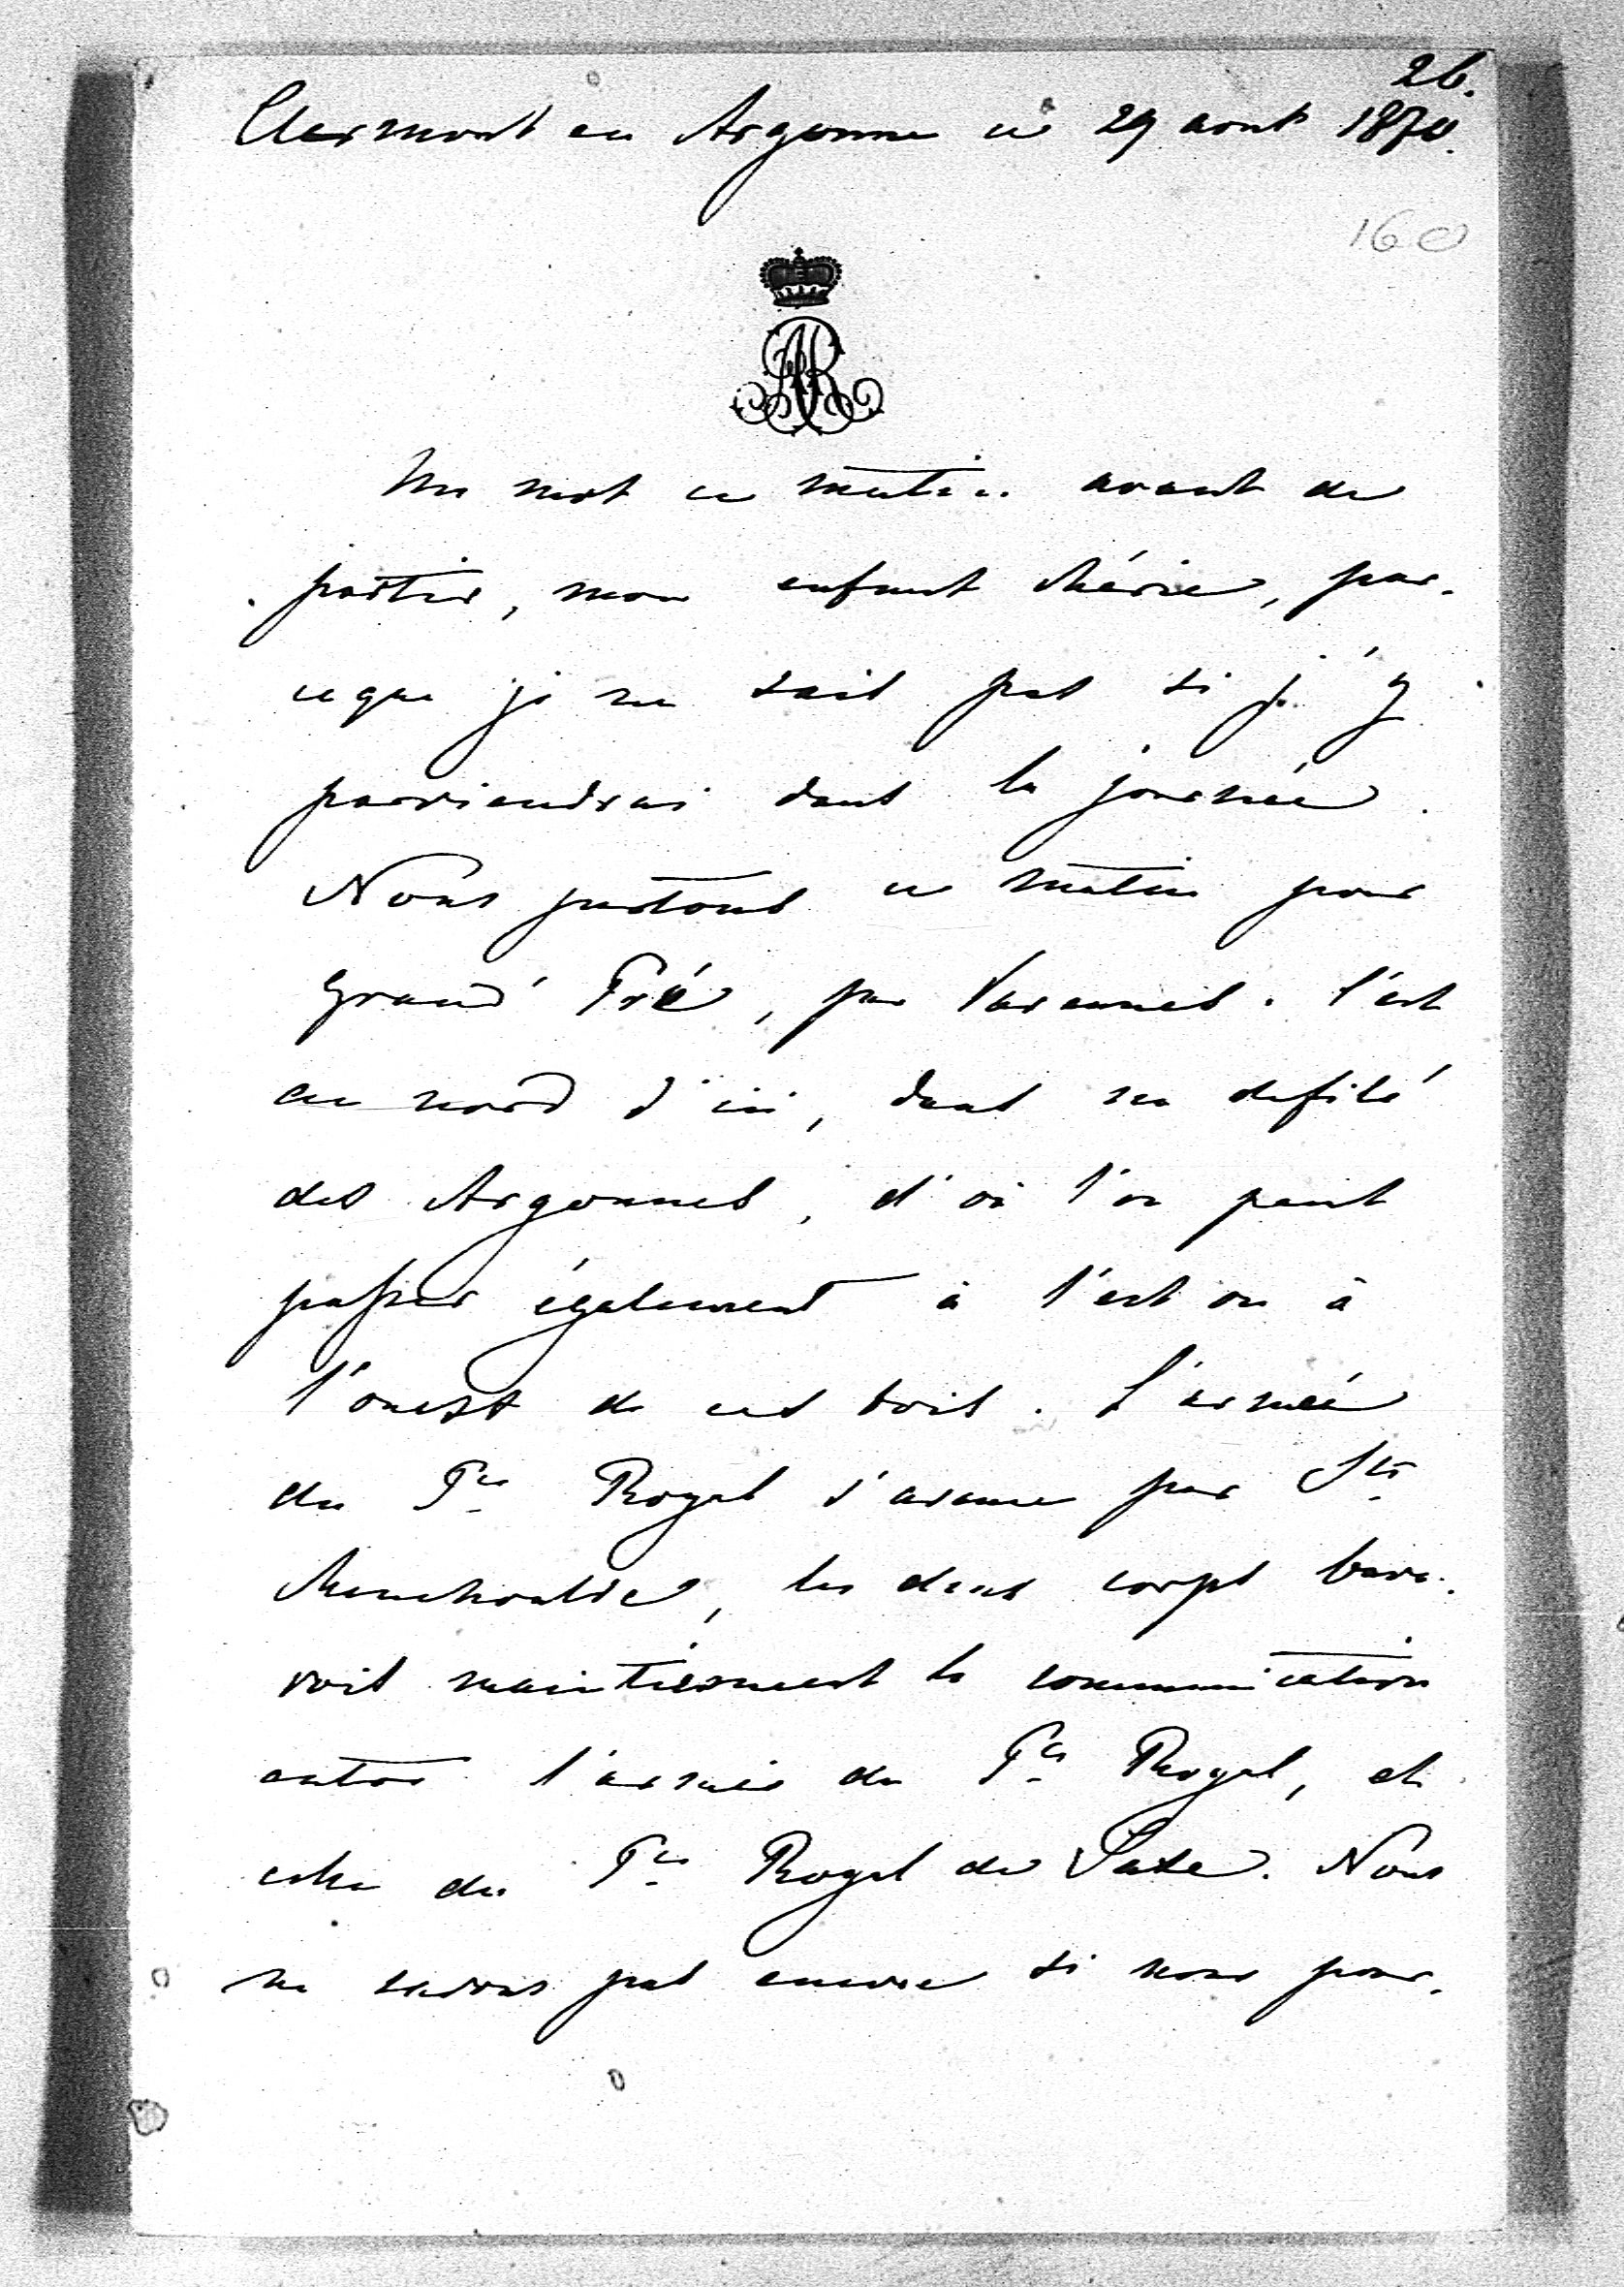 26.
Clermont en Argonne ce 29 aout 1870.
160
AR
Un mot ce matin avant de
partir, mon enfant chérie, par-
ceque je ne sais pas si j'y
parviendrai dans la journée.
Nous partons ce matin pour
Grand' Pré, par Varennes. C'est
au nord d'ici, dans un defilé
des Argonnes, d'où l'on peut
passer également à l'est ou à
l'ouest de ces bois. L'armée
du Pce Royal s'avance par Ste
Menehoulde, les deux corps bava-
rois maintiennent la communication
entre l'armée du Pce Royal, et
celle du Pce Royal de Saxe. Nous
ne savons pas encore si nous pour-